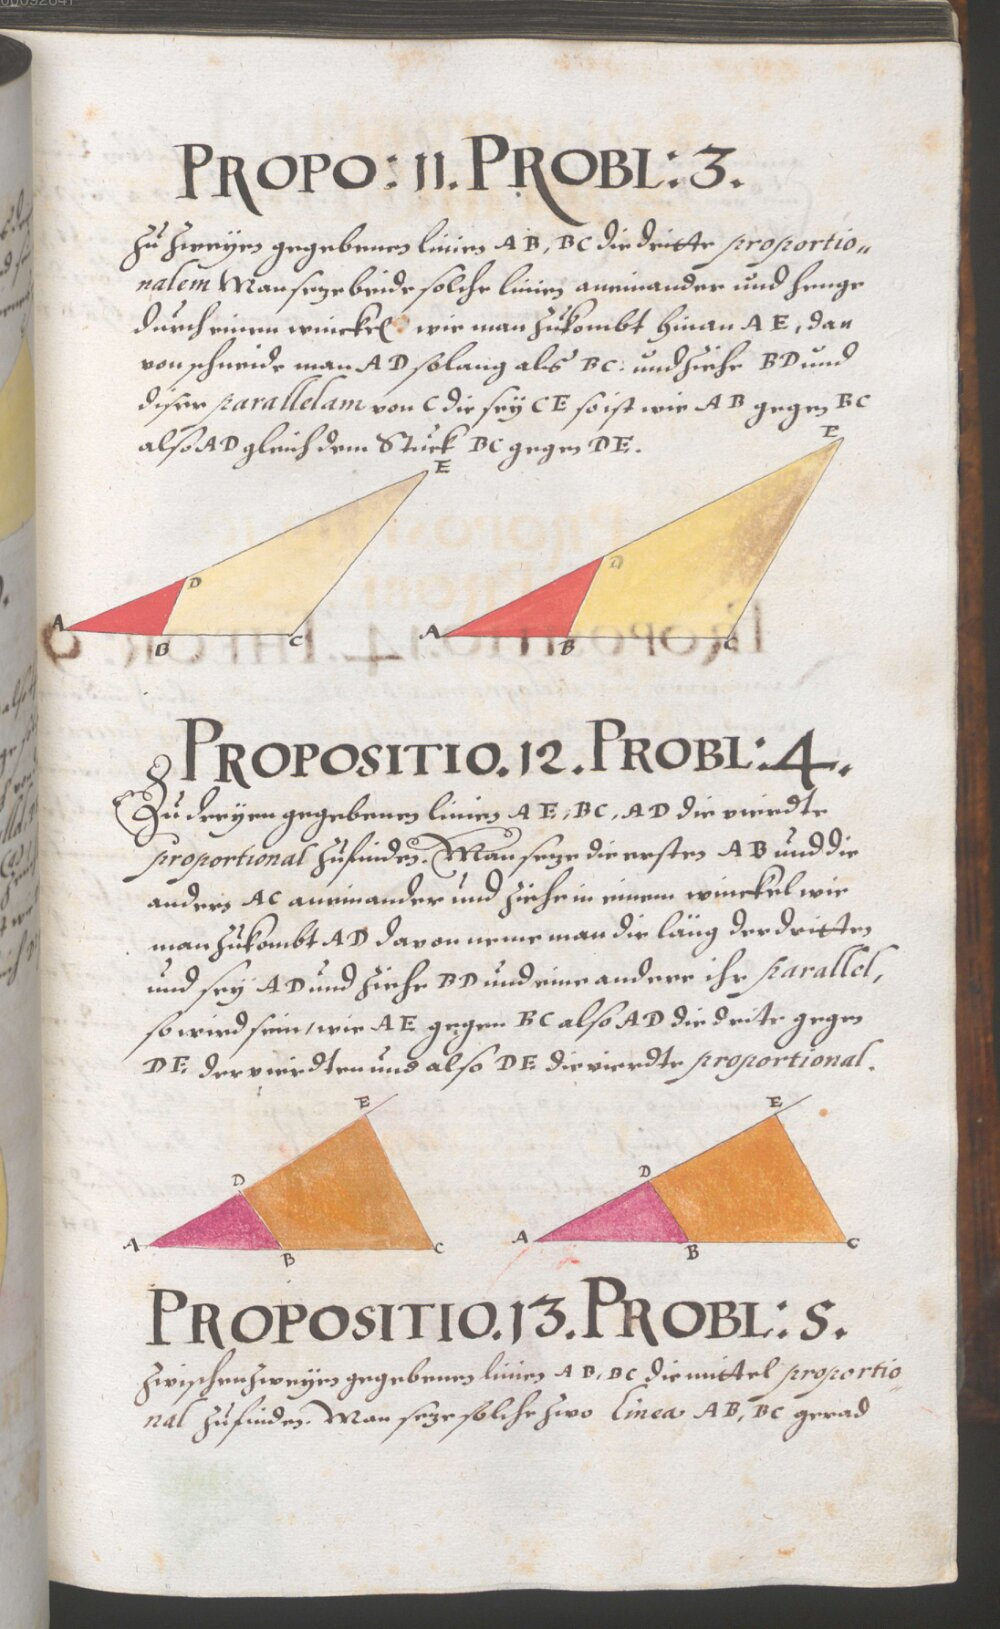 PROPO: 11. PROBL: 3.
Zu zweyen gegebenen linien AB, BC die dritte proportio„
nalem Man seze beide solche linien aneinander und henge
durch einen winckel wie man zukombt hinan AE, dar
von schneide man AD so lang als BC: und ziehe BD und
diser parallelam von C die sey CE so ist wie AB gegen BC
also AD gleich dem Stuck BC gegen DE.
E
E
D
D
A
B
C
A
B
C
PROPOSITIO. 12. PROBL: 4.
Zu dreyen gegebenen linien AE, BC, AD die vierdte
proportional zufinden. Man seze die ersten AB und die
andern AC aneinander und ziehe in einem winckel wie
man zukombt AD davon neme man die läng der dritten
und sey AD und ziehe BD und eine andere ihr parallel,
so wird sein, wie AE gegen BC also AD die drite gegen
DE der vierdten und also DE die vierdte proportional.
E
E
D
D
A
B
C
A
B
C
PROPOSITIO. 13. PROBL: 5.
Zwischen zweyen gegebenen linien AB, BC die mittel proportio„
nal zufinden. Man seze solche zwo Linea AB, BC gerad